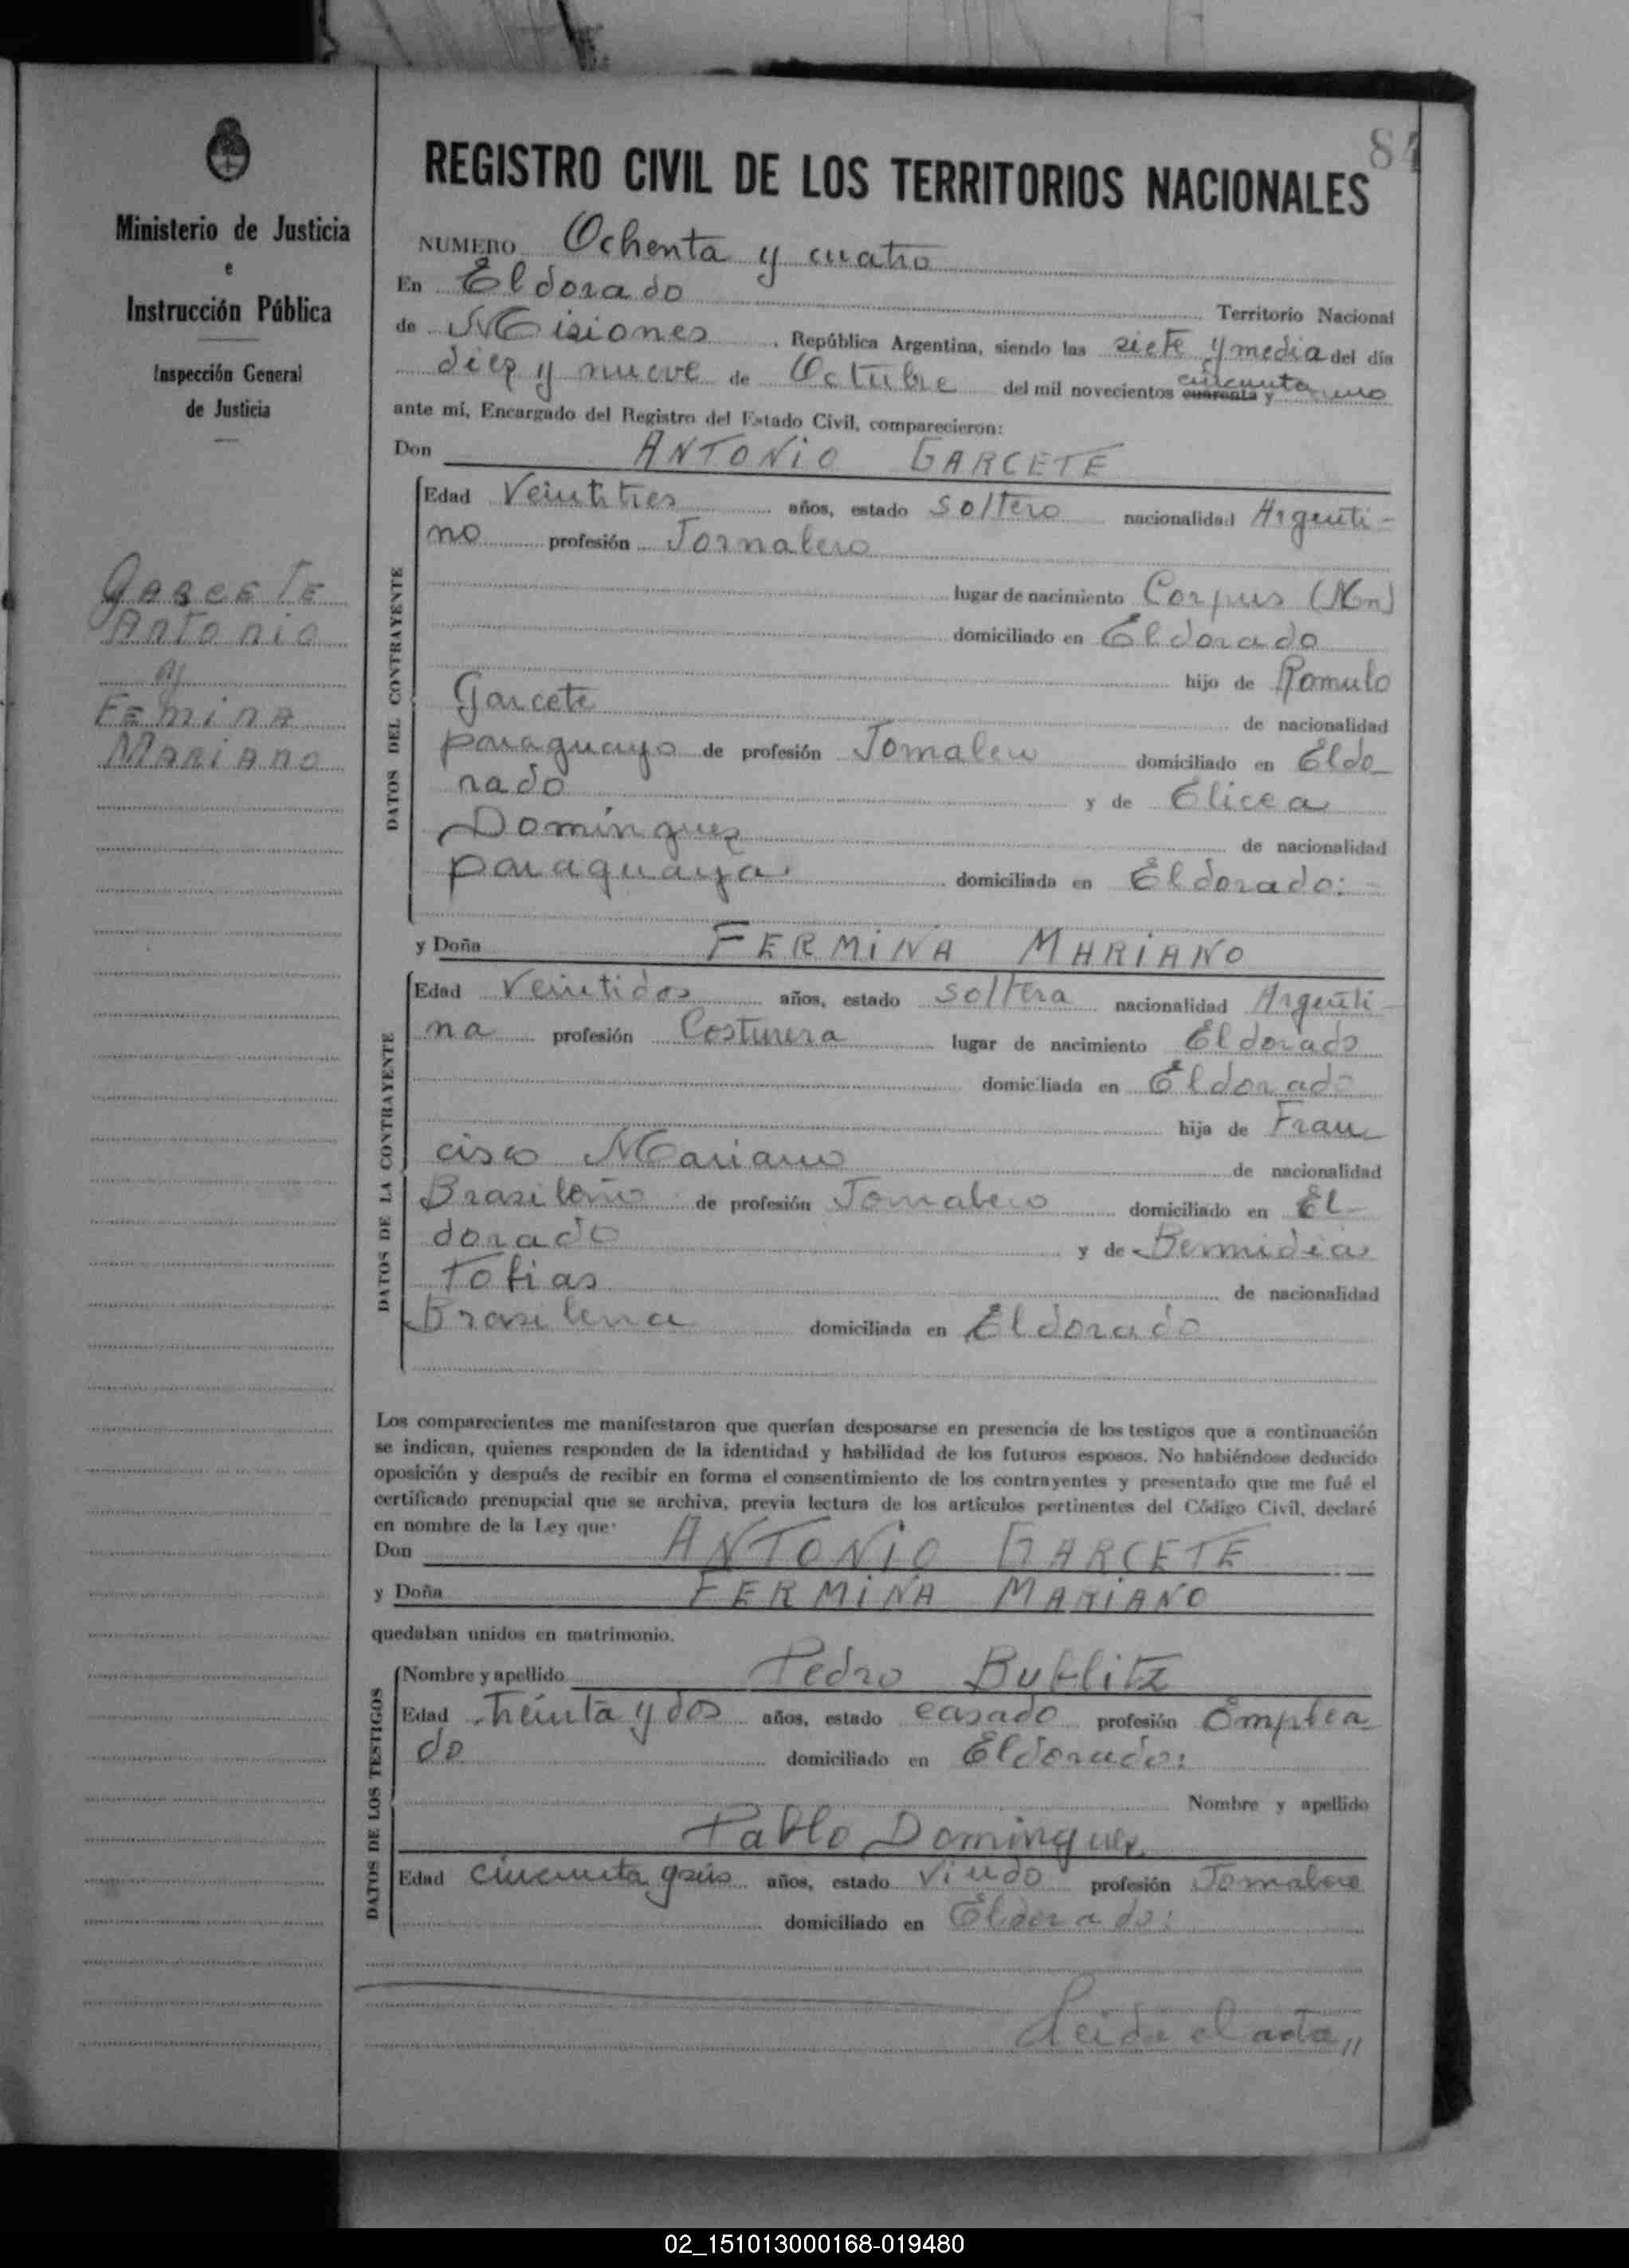 84
Ministerio de Justicia
e
Instrucción Pública
Inspección General
de Justicia
GARCETE
Antonio
y
Femina
Mariano
REGISTRO CIVIL DE LOS TERRITORIOS NACIONALES
NUMERO Ochenta y cuatro
En Eldorado Territorio Nacional
de Misiones, República Argentina, siendo las siete y media del día
diez y nueve de Octubre del mil novecientos cuarenta y cincuenta uno
ante mí, Encargado del Registro del Estado Civil, comparecieron:
Don ANTONIO GARCETE
DATOS DEL CONTRAYENTE
Edad Veintitres años, estado soltero nacionalidad Argenti-
no profesión Jornalero
lugar de nacimiento Corpus (Mn)
domiciliado en Eldorado
hijo de Romulo
Garcete de nacionalidad
paraguayo de profesión Jornalero domiciliado en Eldo
rado y de Elicea
Domínguez de nacionalidad
paraguaya domiciliada en Eldorado:-
y Doña FERMINA MARIANO
DATOS DE LA CONTRAYENTE
Edad Veintidos años, estado soltera nacionalidad Argenti-
na profesión Costurera lugar de nacimiento Eldorado
domiciliada en Eldorado
hija de Fran
cisco Mariano de nacionalidad
Brasileño de profesión Jornalero domiciliado en El-
dorado y de Bermidia
Tobias de nacionalidad
Brasilena domiciliada en Eldorado
Los comparecientes me manifestaron que querían desposarse en presencia de los testigos que a continuación
se indican, quienes responden de la identidad y habilidad de los futuros esposos. No habiéndose deducido
oposición y después de recibir en forma el consentimiento de los contrayentes y presentado que me fué el
certificado prenupcial que se archiva, previa lectura de los artículos pertinentes del Código Civil, declaré
en nombre de la Ley que:
Don ANTONIO GARCETE
y Doña FERMINA MARIANO
quedaban unidos en matrimonio.
DATOS DE LOS TESTIGOS
Nombre y apellido Pedro Bublitz
Edad treinta y dos años, estado casado profesión Emplea
do domiciliado en Eldorado:
Nombre y apellido
Pablo Dominguez
Edad cincuenta y seis años, estado viudo profesión Jornalero
domiciliado en Eldorado:
Leida el acta,,
02_151013000168-019480